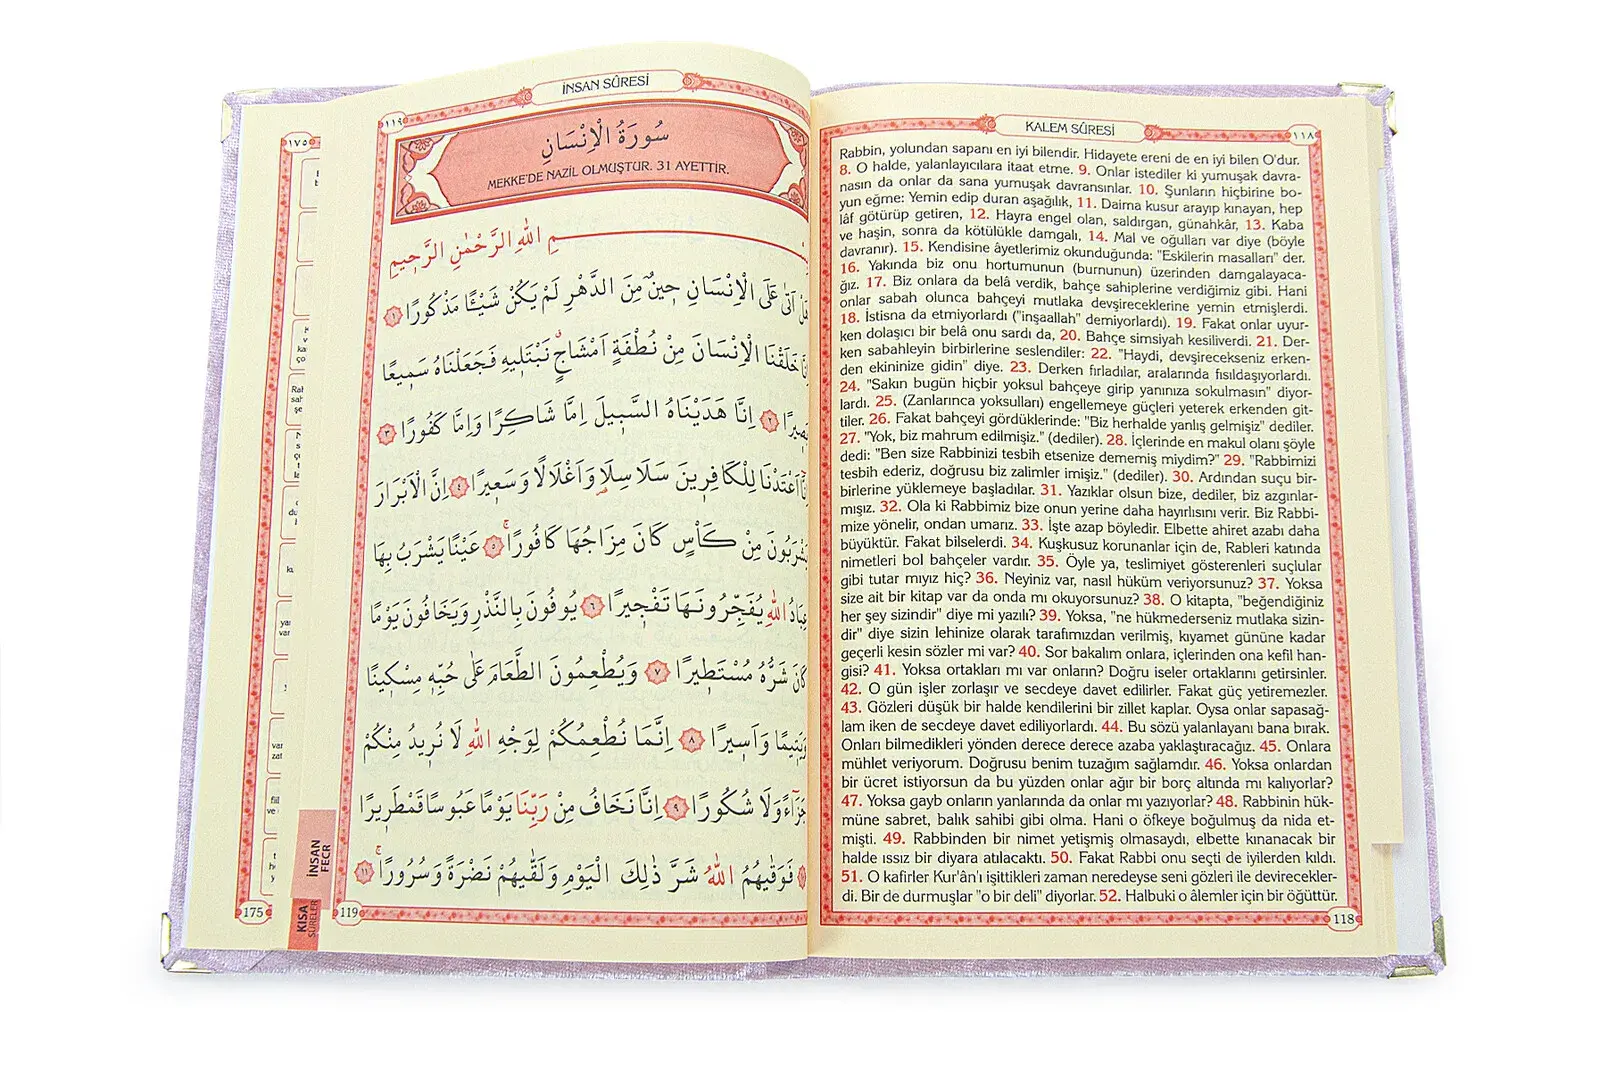 KALEM SÛRESİ
١١٨
Rabbin, yolundan sapanı en iyi bilendir. Hidayete ereni de en iyi bilen O'dur.
8. O halde, yalanlayıcılara itaat etme. 9. Onlar istediler ki yumuşak davra-
nasın da onlar da sana yumuşak davransınlar. 10. Şunların hiçbirine bo-
yun eğme: Yemin edip duran aşağılık, 11. Daima kusur arayıp kınayan, hep
lâf götürüp getiren, 12. Hayra engel olan, saldırgan, günahkâr, 13. Kaba
ve haşin, sonra da kötülükle damgalı, 14. Mal ve oğulları var diye (böyle
davranır). 15. Kendisine âyetlerimiz okunduğunda: "Eskilerin masalları" der.
16. Yakında biz onu hortumunun (burnunun) üzerinden damgalayaca-
ğız. 17. Biz onlara da belâ verdik, bahçe sahiplerine verdiğimiz gibi. Hani
onlar sabah olunca bahçeyi mutlaka devşireceklerine yemin etmişlerdi.
18. İstisna da etmiyorlardı ("inşaallah" demiyorlardı). 19. Fakat onlar uyur-
ken dolaşıcı bir belâ onu sardı da, 20. Bahçe simsiyah kesiliverdi. 21. Der-
ken sabahleyin birbirlerine seslendiler: 22. "Haydi, devşirecekseniz erken-
den ekininize gidin" diye. 23. Derken fırladılar, aralarında fısıldaşıyorlardı.
24. "Sakın bugün hiçbir yoksul bahçeye girip yanınıza sokulmasın" diyor-
lardı. 25. (Zanlarınca yoksulları) engellemeye güçleri yeterek erkenden git-
tiler. 26. Fakat bahçeyi gördüklerinde: "Biz herhalde yanlış gelmişiz" dediler.
27. "Yok, biz mahrum edilmişiz." (dediler). 28. İçlerinde en makul olanı şöyle
dedi: "Ben size Rabbinizi tesbih etsenize dememiş miydim?" 29. "Rabbimizi
tesbih ederiz, doğrusu biz zalimler imişiz." (dediler). 30. Ardından suçu bir-
birlerine yüklemeye başladılar. 31. Yazıklar olsun bize, dediler, biz azgınlar-
mışız. 32. Ola ki Rabbimiz bize onun yerine daha hayırlısını verir. Biz Rabbi-
mize yönelir, ondan umarız. 33. İşte azap böyledir. Elbette ahiret azabı daha
büyüktür. Fakat bilselerdi. 34. Kuşkusuz korunanlar için de, Rableri katında
nimetleri bol bahçeler vardır. 35. Öyle ya, teslimiyet gösterenleri suçlular
gibi tutar mıyız hiç? 36. Neyiniz var, nasıl hüküm veriyorsunuz? 37. Yoksa
size ait bir kitap var da onda mı okuyorsunuz? 38. O kitapta, "beğendiğiniz
her şey sizindir" diye mi yazılı? 39. Yoksa, "ne hükmederseniz mutlaka sizin-
dir" diye sizin lehinize olarak tarafımızdan verilmiş, kıyamet gününe kadar
geçerli kesin sözler mi var? 40. Sor bakalım onlara, içlerinden ona kefil han-
gisi? 41. Yoksa ortakları mı var onların? Doğru iseler ortaklarını getirsinler.
42. O gün işler zorlaşır ve secdeye davet edilirler. Fakat güç yetiremezler.
43. Gözleri düşük bir halde kendilerini bir zillet kaplar. Oysa onlar sapasağ-
lam iken de secdeye davet ediliyorlardı. 44. Bu sözü yalanlayanı bana bırak.
Onları bilmedikleri yönden derece derece azaba yaklaştıracağız. 45. Onlara
mühlet veriyorum. Doğrusu benim tuzağım sağlamdır. 46. Yoksa onlardan
bir ücret istiyorsun da bu yüzden onlar ağır bir borç altında mı kalıyorlar?
47. Yoksa gayb onların yanlarında da onlar mı yazıyorlar? 48. Rabbinin hük-
müne sabret, balık sahibi gibi olma. Hani o öfkeye boğulmuş da nida et-
mişti. 49. Rabbinden bir nimet yetişmiş olmasaydı, elbette kınanacak bir
halde ıssız bir diyara atılacaktı. 50. Fakat Rabbi onu seçti de iyilerden kıldı.
51. O kafirler Kur'ân'ı işittikleri zaman neredeyse seni gözleri ile devirecekler-
di. Bir de durmuşlar "o bir deli" diyorlar. 52. Halbuki o âlemler için bir öğüttür.
118
İNSAN SÛRESİ
١١٩
سُورَةُ الْاِنْسَانِ
MEKKE'DE NAZİL OLMUŞTUR. 31 AYETTİR.
اللهِ الرَّحْمٰنِ الرَّحِيمِ
اَتٰى عَلَى الْاِنْسَانِ حِينٌ مِنَ الدَّهْرِ لَمْ يَكُنْ شَيْئًا مَذْكُورًا ١
خَلَقْنَا الْاِنْسَانَ مِنْ نُطْفَةٍ اَمْشَاجٍ نَبْتَلِيهِ فَجَعَلْنَاهُ سَمِيعًا
٢ اِنَّا هَدَيْنَاهُ السَّبِيلَ اِمَّا شَاكِرًا وَاِمَّا كَفُورًا ٣
اَعْتَدْنَا لِلْكَافِرِينَ سَلَاسِلَا وَاَغْلَالًا وَسَعِيرًا ٤ اِنَّ الْاَبْرَارَ
يَشْرَبُونَ مِنْ كَأْسٍ كَانَ مِزَاجُهَا كَافُورًا ٥ عَيْنًا يَشْرَبُ بِهَا
عِبَادُ اللهِ يُفَجِّرُونَهَا تَفْجِيرًا ٦ يُوفُونَ بِالنَّذْرِ وَيَخَافُونَ يَوْمًا
كَانَ شَرُّهُ مُسْتَطِيرًا ٧ وَيُطْعِمُونَ الطَّعَامَ عَلٰى حُبِّهِ مِسْكِينًا
وَيَتِيمًا وَاَسِيرًا ٨ اِنَّمَا نُطْعِمُكُمْ لِوَجْهِ اللهِ لَا نُرِيدُ مِنْكُمْ
جَزَاءً وَلَا شُكُورًا ٩ اِنَّا نَخَافُ مِنْ رَبِّنَا يَوْمًا عَبُوسًا قَمْطَرِيرًا
فَوَقٰيهُمُ اللهُ شَرَّ ذٰلِكَ الْيَوْمِ وَلَقّٰيهُمْ نَضْرَةً وَسُرُورًا ١١
119
İNSAN
FECR
KISA
SÛRELER
١٧٥
175